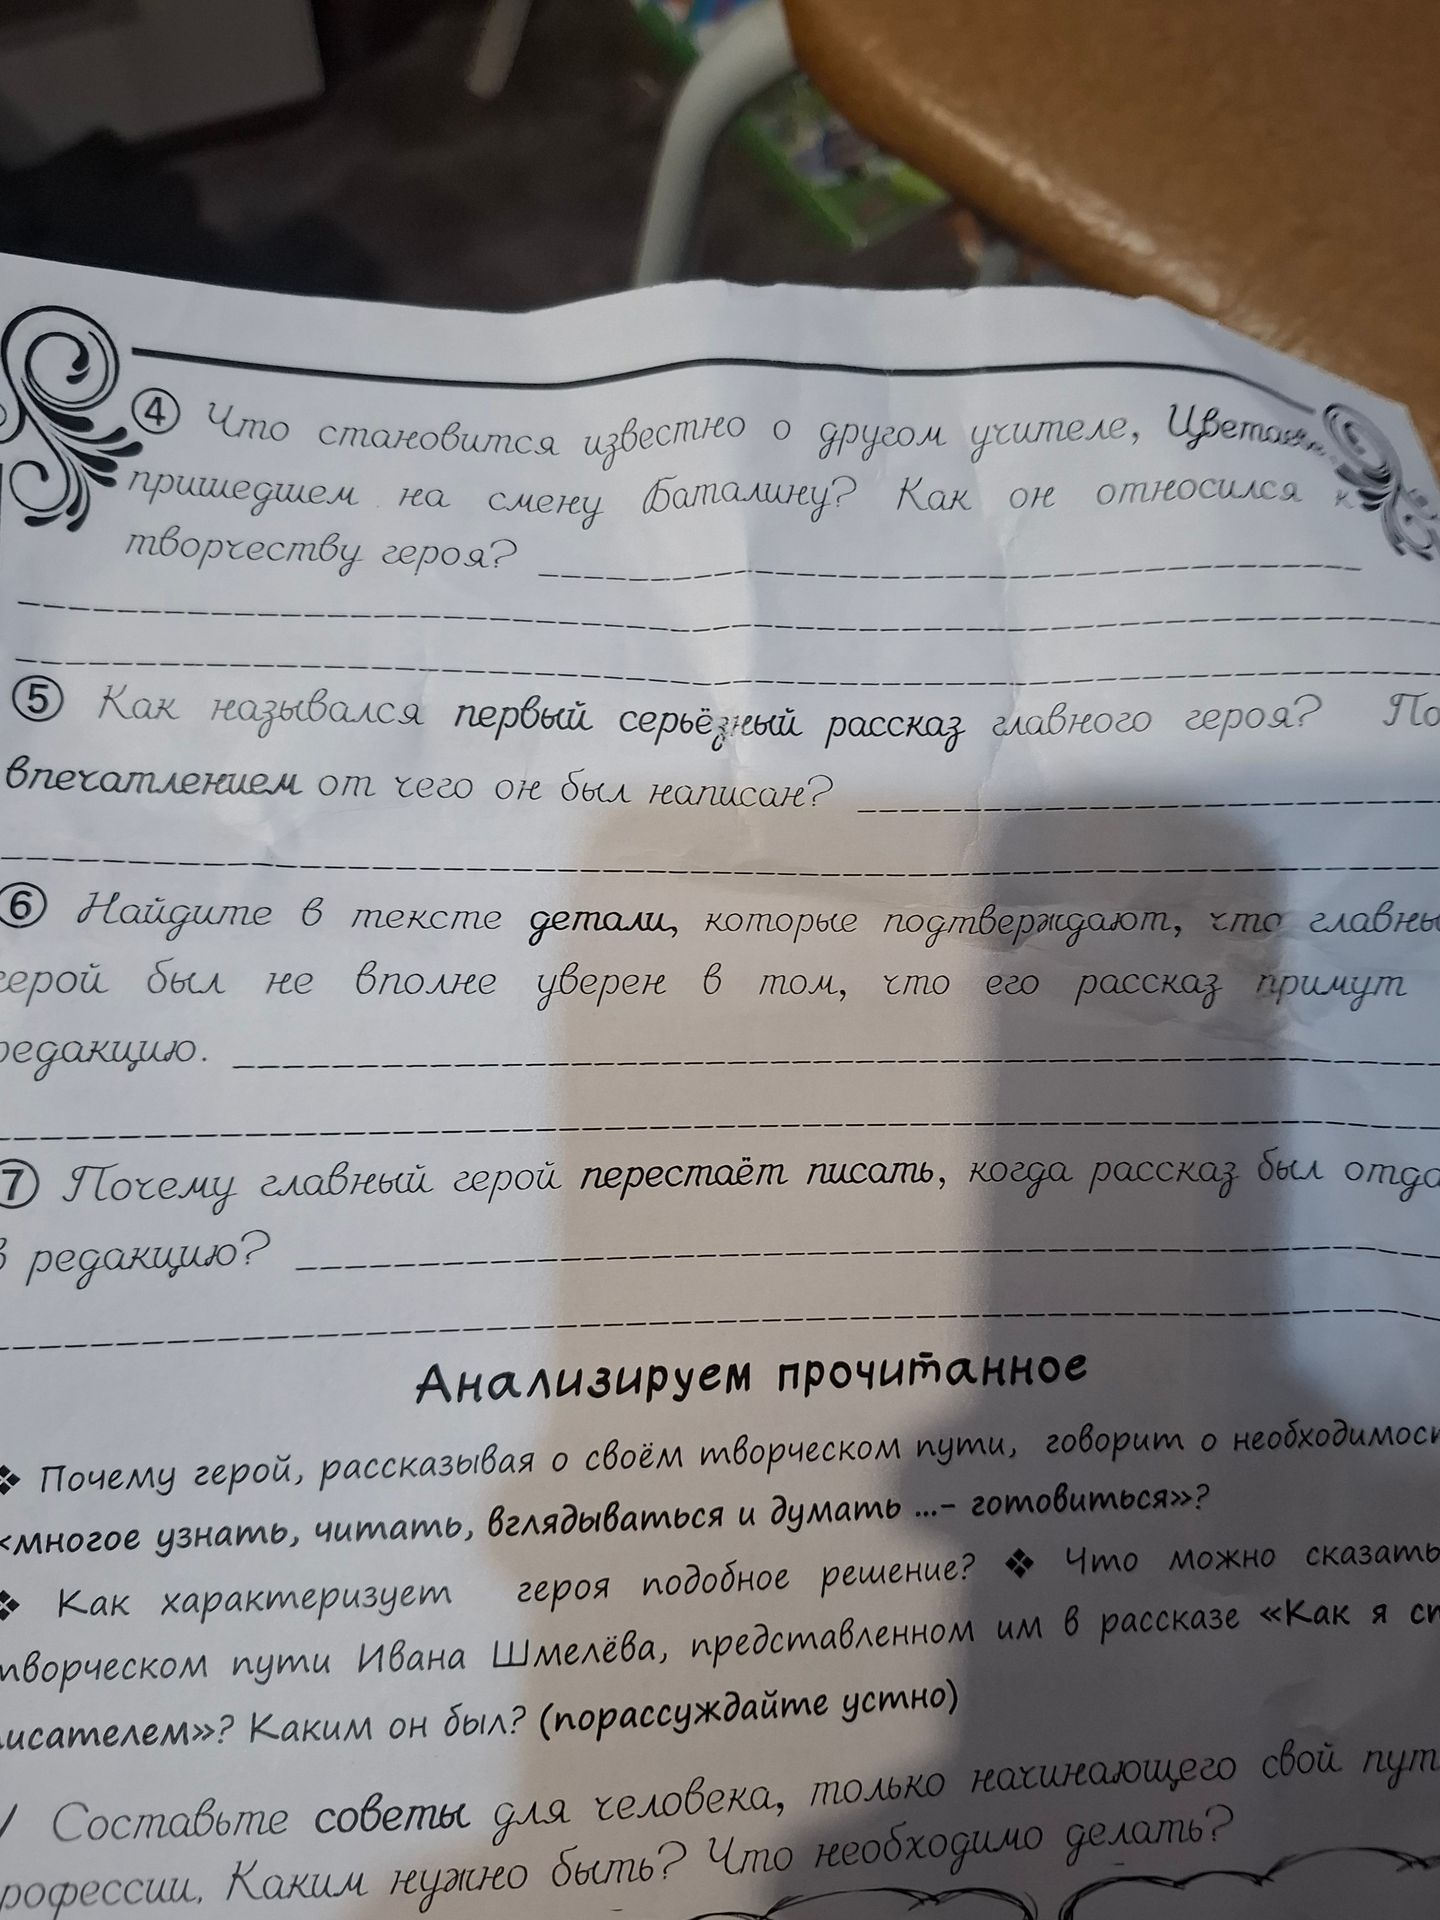 ④ Что становится известно о другом учителе,
пришедшем на смену Баталину? Как он относился к
творчеству героя?
⑤ Как назывался первый серьёзный рассказ главного героя? По
впечатлением от чего он был написан?
⑥ Найдите в тексте детали, которые подтверждают, что главны
герой был не вполне уверен в том, что его рассказ примут
редакцию.
⑦ Почему главный герой перестаёт писать, когда рассказ был отда
в редакцию?
Анализируем прочитанное
❖ Почему герой, рассказывая о своём творческом пути, говорит о необходимост
«многое узнать, читать, вглядываться и думать ...- готовиться»?
❖ Как характеризует героя подобное решение? ❖ Что можно сказать
творческом пути Ивана Шмелёва, представленном им в рассказе «Как я ст
писателем»? Каким он был? (порассуждайте устно)
Составьте советы для человека, только начинающего свой пут
рофессии. Каким нужно быть? Что необходимо делать?